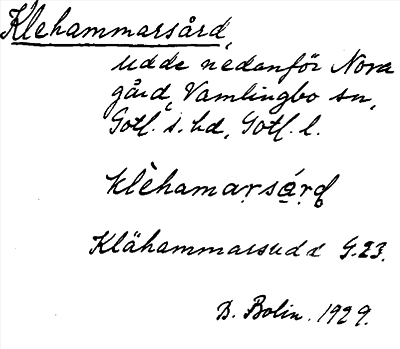 Klehammarsård,
udde nedanför Nora
gård, Vamlingbo sn,
Gotl. s. hd, Gotl. l.
klèhamaṛsá̱ṛḍ
Klähammarsudd G. 23.
B. Bolin. 1929.